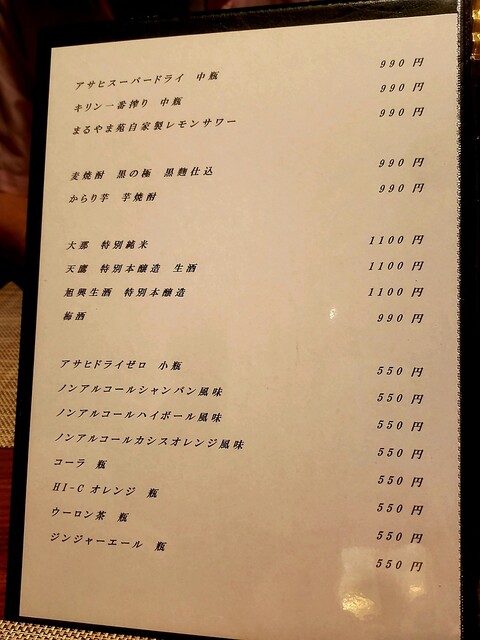 アサヒスーパードライ 中瓶 990 円
キリン一番搾り 中瓶 990 円
まるやま苑自家製レモンサワー 990 円
麦焼酎 黒の極 黒麹仕込 990 円
からり芋 芋焼酎 990 円
大那 特別純米 1100 円
天鷹 特別本醸造 生酒 1100 円
旭興生酒 特別本醸造 1100 円
梅酒 990 円
アサヒドライゼロ 小瓶 550 円
ノンアルコールシャンパン風味 550 円
ノンアルコールハイボール風味 550 円
ノンアルコールカシスオレンジ風味 550 円
コーラ 瓶 550 円
HI-C オレンジ 瓶 550 円
ウーロン茶 瓶 550 円
ジンジャーエール 瓶 550 円